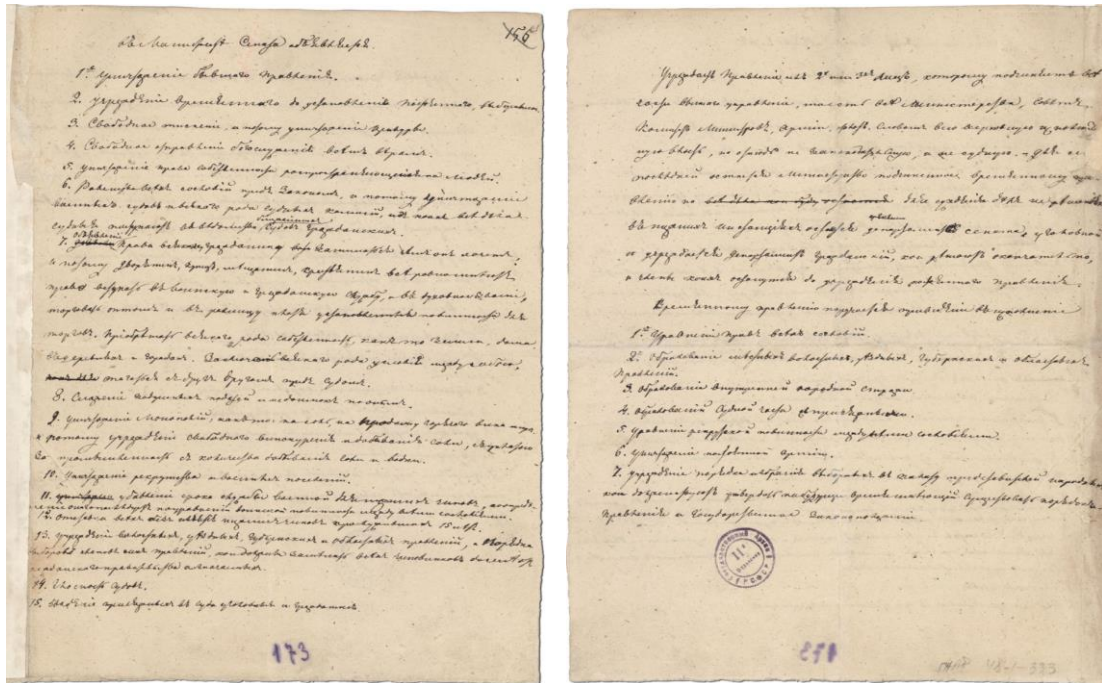 въ Манифестѣ Сената объявляется.
156
1е Уничтоженіе бывшаго Правленія.
2. учрежденіе временнаго до установленія постояннаго, выборными.
3. Свободное тисненіе, и потому уничтоженіе цензуры.
4. Свободное отправленіе богослуженія всѣмъ вѣрамъ.
5. уничтоженіе права собственности распространяющейся на людей.
6. Равенство всѣхъ сословій предъ Закономъ, и потому уничтоженіе
военныхъ судовъ и всякаго рода судныхъ коммисій, изъ коихъ всѣ дѣла
судныя поступаютъ въ вѣдомство судовъ гражданскихъ.
7. Объявленіе права всякому гражданину заниматься чѣмъ онъ хочетъ,
и потому дворянинъ, купецъ, мѣщанинъ, крестьянинъ всѣ равно имѣютъ
право вступать въ воинскую и гражданскую службу, и въ духовное званіе,
торговать оптомъ и въ розницу платя установленныя повинности для
торговъ. Пріобрѣтать всякаго рода собственность, какъ то земли, дома
въ деревняхъ и городахъ. Заключать всякаго рода условія между собою,
тягаться съ другъ другомъ предъ судомъ.
8. Сложеніе подушныхъ податей и недоимокъ по онымъ.
9. уничтоженіе монополій, какъ то: на соль, на продажу горячаго вина
и потому учрежденіе свободнаго винокуренія и добыванія соли, съ уплатою
за промышленность съ количества добыванія соли и водки.
10. Уничтоженіе рекрутства и военныхъ поселеній.
11. убавленіе срока службы военной для нижнихъ чиновъ
уравненіи воинской повинности между всѣми сословіями.
12. Отставка всѣхъ безъ изъятія нижнихъ чиновъ прослужившихъ 15 лѣтъ.
13. Учрежденіе волостныхъ, уѣздныхъ, губернскихъ и областныхъ правленій, и порядка
выборовъ членовъ сихъ правленій, кои должны замѣнить всѣхъ чиновниковъ
отъ гражданскаго правительства назначенныхъ.
14. Гласность судовъ.
15. Введеніе присяжныхъ въ суды уголовные и гражданскіе.
173
Учреждаетъ Правленіе изъ 2хъ или 3хъ лицъ, которому подчиняетъ всѣ
части вышняго управленія, то есть всѣ Министерства, Совѣтъ,
Комитетъ Министровъ, Арміи, флотъ. Словомъ всю верховную исполнитель-
ную власть, но отнюдь не законодательную, и не судную. Для сей
послѣдней остается Министерство подчиненное временному пра-
вленію но для сужденія дѣлъ не рѣшенныхъ
въ нижнихъ инстанціяхъ остается департаментъ сената уголовной
и учреждается департаментъ гражданскій, кои рѣшаютъ окончательно,
и члены коихъ останутся до учрежденія постояннаго правленія.
Временному правленію поручается приведеніе въ исполненіе
1е Уравненіе правъ всѣхъ сословій.
2е Образованіе мѣстныхъ волостныхъ, уѣздныхъ, губернскихъ и областныхъ
Правленій.
3. Образованіе внутренней народной стражи.
4. Образованіе судной части съ присяжными.
5. Уравненіе рекрутской повинности между всѣми сословіями.
6. Уничтоженіе постоянной арміи.
7. учрежденіе порядка избранія выборныхъ въ палату представителей народныхъ
кои долженствуютъ утвердить на будущее время имѣющій существовать порядокъ
Правленія и Государственное Законоположеніе.
173
ГАРФ 48-1-333